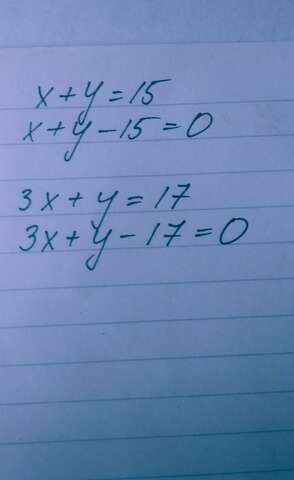 x+y=15
x+y-15=0
3x+y=17
3x+y-17=0